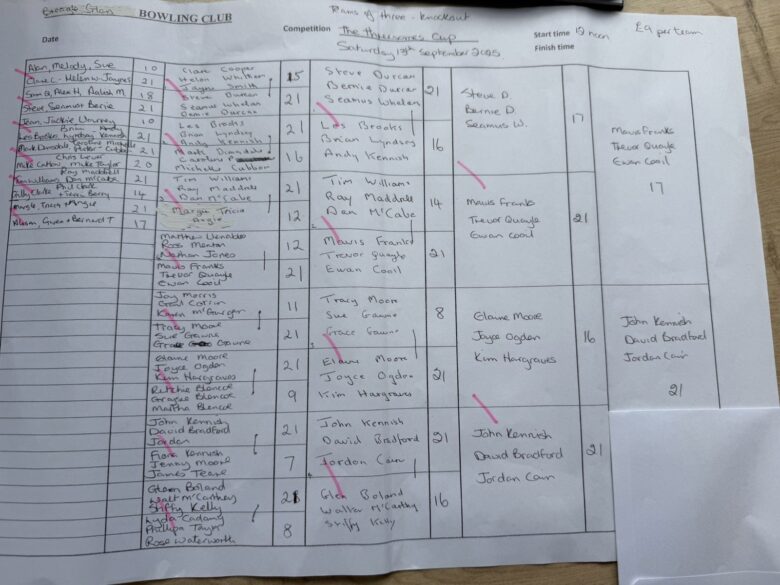 BOWLING CLUB
Teams of three - knockout
Competition The Threesomes Cup
Saturday 13th September 2025
Start time 12 noon
Finish time
£9 per team
Date
Alan, Melody, Sue 10
Claire C - Helen W - Jaynes 21
Sam B, Alex H, 18
Steve, Seamus + Bernie 21
Jean, Jackie 10
21
16
Chris Lever
Mike Callow, Mike Taylor 20
Ray Maddrell
Tim Williams, Dan McCabe 21
Phil Clark
14
Margie, Tricia + Angie 21
Alison, Gwen + Bernard T 17
Clare Cooper
Helen
Jayne Smith
15
Steve Durcan
Seamus Whelan
Bernie Durcan
21
Les Brooks
Brian Lyndsay
Andy Kennish
21
Mark
Caroline
Michelle Cubbon
16
Tim Williams
Ray Maddrell
Dan McCabe
21
Margie Tricia
Angie
12
Matthew
Ross
Nathan Jones
12
Mavis Franks
Trevor Quayle
Ewan Cooil
21
Joy Morris
11
Tracy Moore
Sue Gawne
Grace Gawne
21
Elaine Moore
Joyce Ogden
Kim Hargraves
21
Ritchie Blencoe
Blencoe
Martha Blencoe
9
John Kennish
David Bradford
Jordan
21
Fiona Kennish
Jenny Moore
James Teare
7
Glen Boland
Walt McCarthey
Stiffy Kelly
21
Phillipa
Rose Waterworth
8
Steve Durcan
Bernie Durcan
Seamus Whelan
21
Les Brooks
Brian Lyndsay
Andy Kennish
16
Tim Williams
Ray Maddrell
Dan McCabe
14
Mavis Franks
Trevor Quayle
Ewan Cooil
21
Tracy Moore
Sue Gawne
Grace Gawne
8
Elaine Moore
Joyce Ogden
Kim Hargraves
21
John Kennish
David Bradford
Jordan Cain
21
Glen Boland
Walter McCarthy
Stiffy Kelly
16
Steve D.
Bernie D.
Seamus W.
17
Mavis Franks
Trevor Quayle
Ewan Cooil
21
Elaine Moore
Joyce Ogden
Kim Hargraves
16
John Kennish
David Bradford
Jordan Cain
21
Mavis Franks
Trevor Quayle
Ewan Cooil
17
John Kennish
David Bradford
Jordan Cain
21